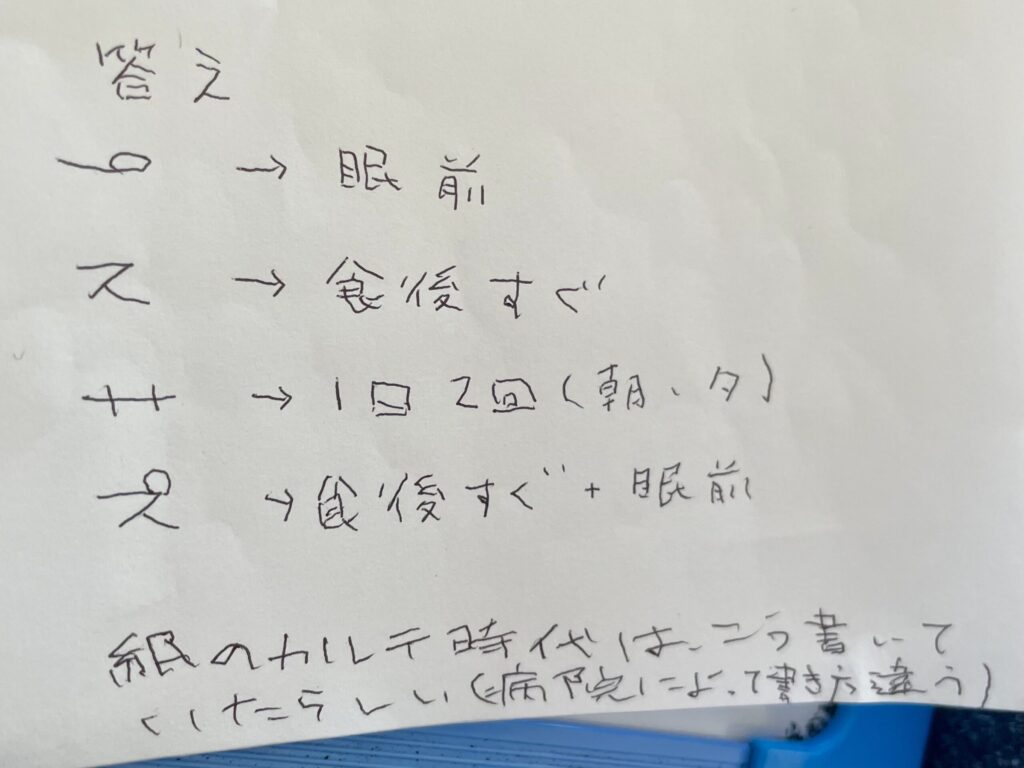 答え
→ 眠前
ス → 食後すぐ
→ 1日2回(朝、夕)
→ 食後すぐ+眠前
紙のカルテ時代は、こう書いて
いたらしい(病院によって書き方違う)